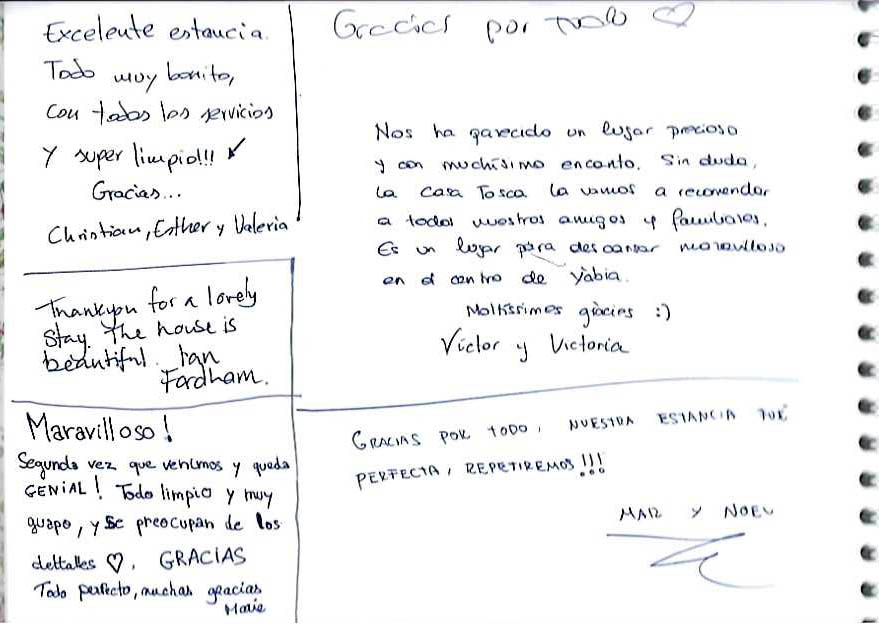 Excelente estancia.
Todo muy bonito,
con todos los servicios
Y super limpio!!! ✓
Gracias...
Christian, Esther y Valeria
Thankyou for a lovely
stay. The house is
beautiful. Ian
Fordham.
Maravilloso!
Segunda vez que venimos y queda
GENIAL! Todo limpio y muy
guapo, y se preocupan de los
dettalles ♡. GRACIAS
Todo perfecto, muchas gracias
Marie
Gracias por todo ♡
Nos ha parecido un lugar precioso
y con muchísimo encanto. Sin duda,
la Casa Tosca la vamos a recomendar
a todos nuestros amigos y familiares.
Es un lugar para descansar maravilloso
en el centro de Yàbia.
Moltíssimes gràcies :)
Víctor y Victoria
GRACIAS POR TODO, NUESTRA ESTANCIA FUE
PERFECTA, REPETIREMOS!!!
MAR Y NOEL